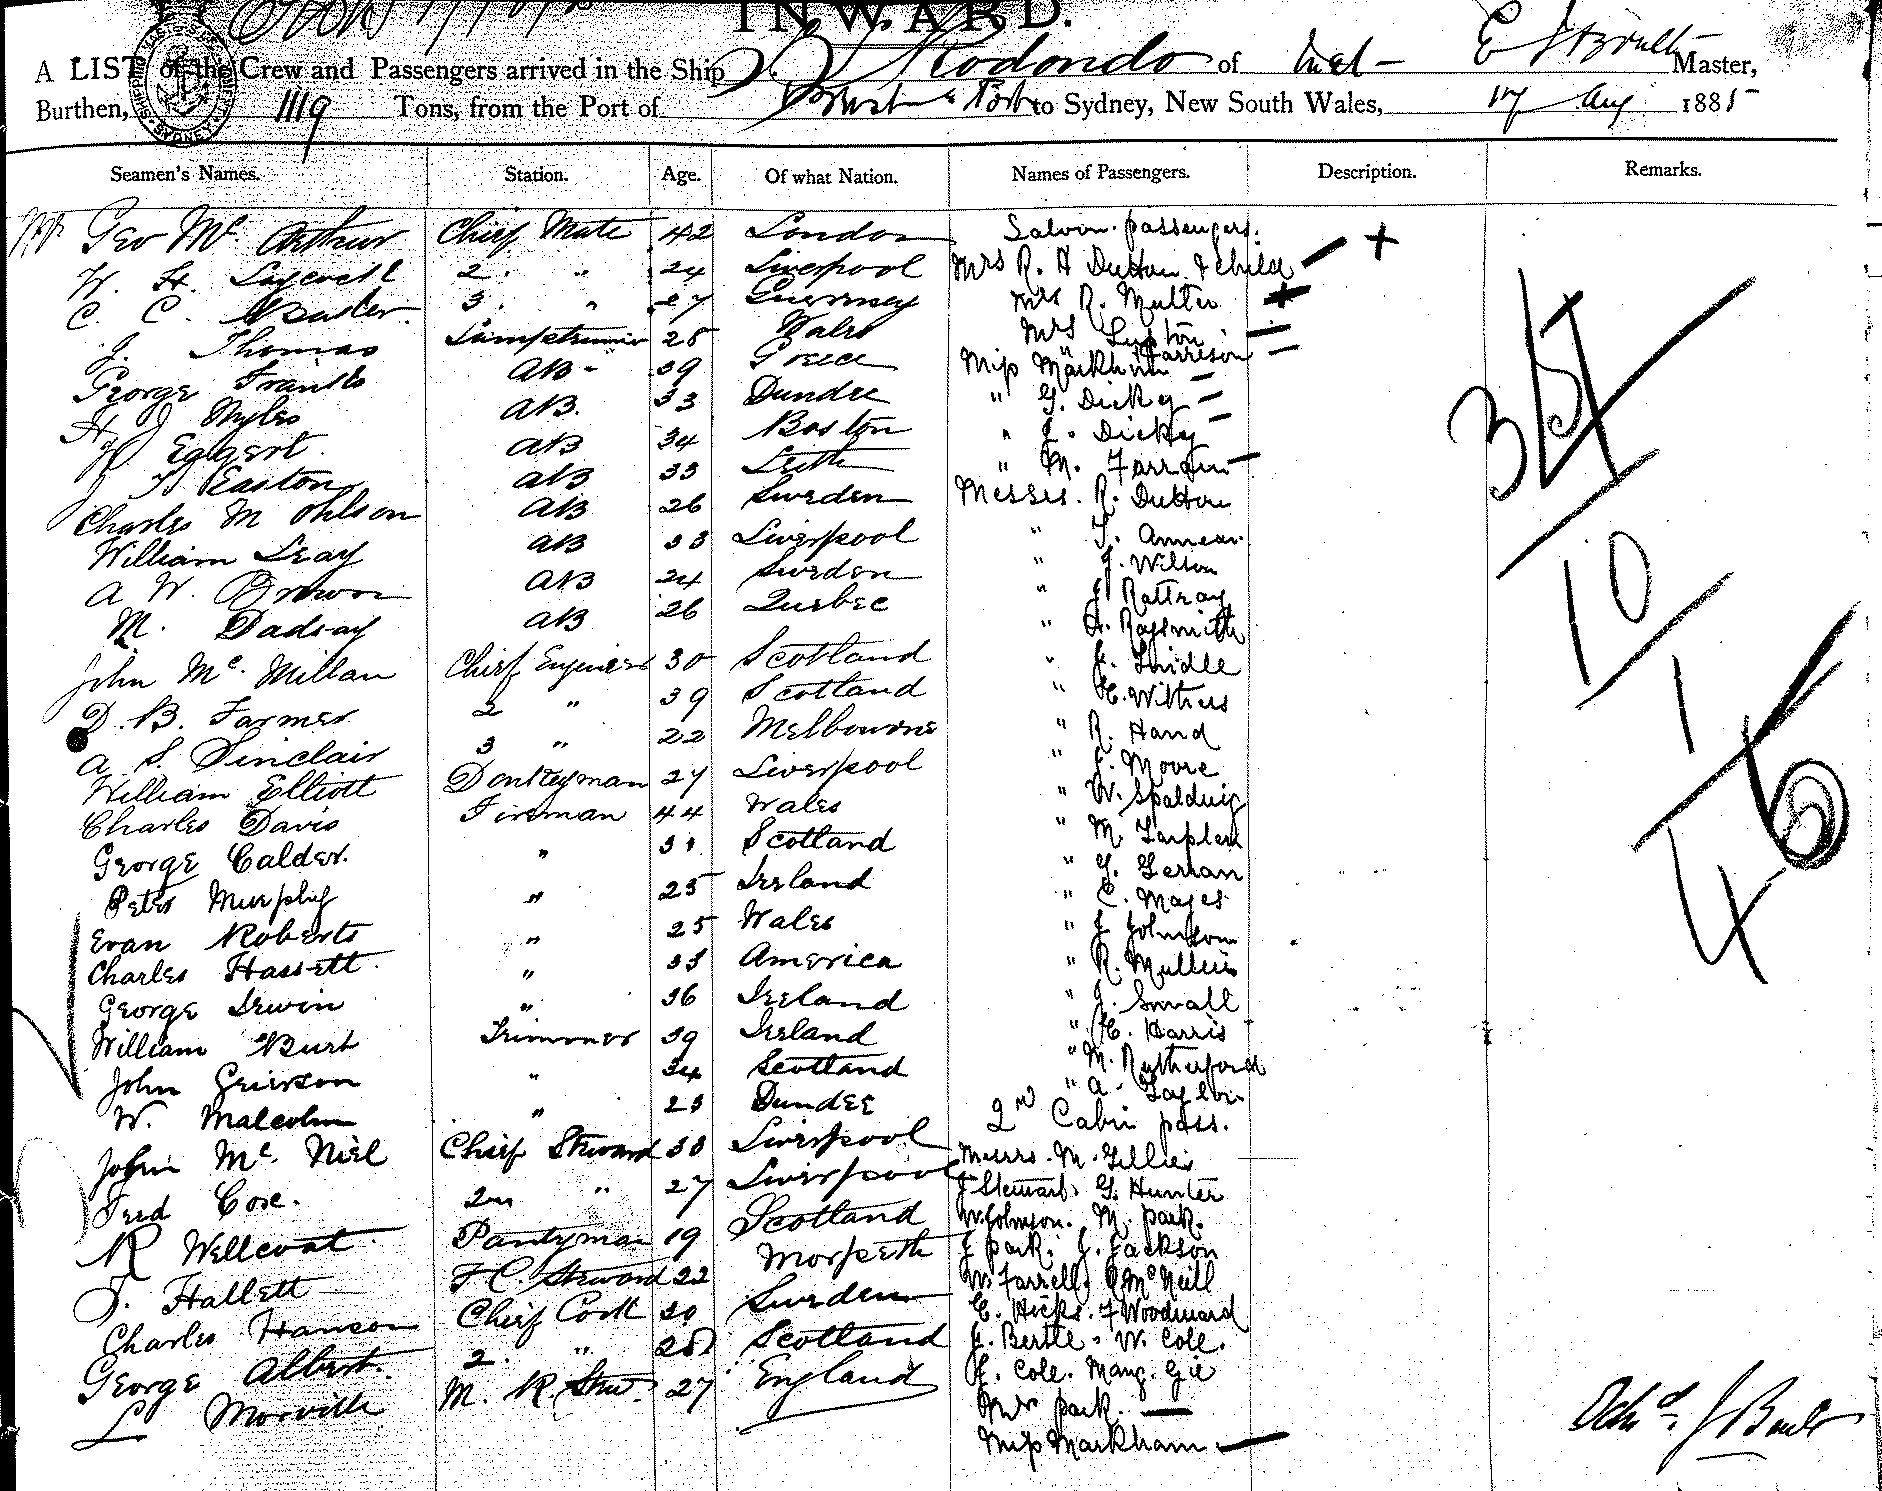 INWARD.
A LIST of the Crew and Passengers arrived in the Ship Rodondo of Master,
Burthen, 1119 Tons, from the Port of to Sydney, New South Wales, 17 Aug 1885
Seamen's Names. Station. Age. Of what Nation. Names of Passengers. Description. Remarks.
Geo Mc Arthur Chief Mate 42 London Saloon passengers.
W. H. 2 " 24 Liverpool Mrs R. H Dutton & child
C. C. 3. " 27 Guernsey Mrs R. Multer
J. Thomas Lamptrimmer 28 Wales Mrs Lupton
" Harrison
George AB- 39 Greece Miss Markham
H J Myles AB. 33 Dundee " G. Dicky
Eggert AB 34 Boston " J. Dicky
J B Easton AB 33 Leith " M.
Charles M Ohlson AB 26 Sweden Messrs. R. Dutton
William Leay AB 33 Liverpool " T. Annear
A W. Brown AB 24 Sweden " J. Wilson
M. Dadsay AB 26 Quebec " J Rattray
" A. Raysmith
John Mc Millan Chief Engineer 30 Scotland " J.
D. B. Farmer 2 " 39 Scotland " H. Withers
A. S. Sinclair 3 " 22 Melbourne " R. Hand
William Elliott Donkeyman 27 Liverpool " J. Moore
Charles Davis Fireman 44 Wales " W. Spalding
George Calder. " 31 Scotland " M
Peter Murphy " 25 Ireland " G.
" C. Mayes
Evan Roberts " 25 Wales " J Johnson
Charles Hassett " 33 America " R. Mullins
George Irwin " 36 Ireland " J. Small
William Burt Trimmer 39 Ireland " H. Harris
John Grierson " 34 Scotland " M. Rutherford
W. Malcolm " 23 Dundee " A. Taylor
2nd Cabin pass.
John Mc Niel Chief Steward 33 Liverpool Messrs. M. Gillies
Fred Cox. 2nd " 27 Liverpool J Stewart. G. Hunter
R Wellcoat Pantryman 19 Scotland W. Johnson. M. Park.
J. Hallett F C. Steward 22 Morpeth J Park. J. Jackson
Charles Hanson Chief Cook 30 Sweden W. Farrell. McNeill
George Albert. 2. " 28 Scotland E. Hicks. F Woodward
L Morville M. R. Stew. 27 England J. Bertle. W. Cole.
H. Cole. Mang. Gie
Mrs Park.
Miss Markham
35
10
1
46